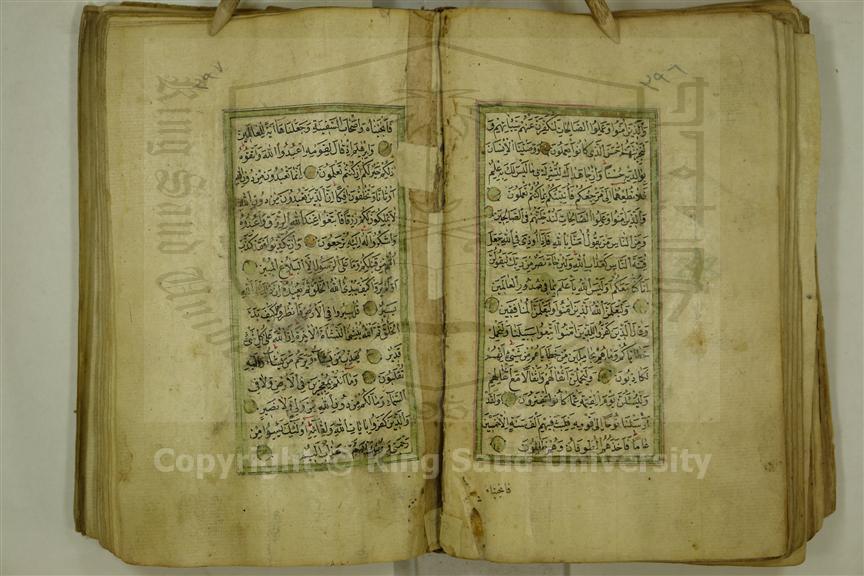 ٢٩٦
والذين امنوا وعملوا الصالحات لنكفرن عنهم سيئاتهم و
لنجزينهم احسن الذى كانوا يعملون ووصينا الانسان
بوالديه حسنا وان جاهداك لتشرك بى ما ليس لك به علم
فلا تطعهما الى مرجعكم فانبئكم بما كنتم تعملون
والذين امنوا وعملوا الصالحات لندخلنهم فى الصالحين
ومن الناس من يقول امنا بالله فاذا اوذى فى الله جعل
فتنة الناس كعذاب الله ولئن جاء نصر من ربك ليقولن
انا كنا معكم اوليس الله باعلم بما فى صدور العالمين
وليعلمن الله الذين امنوا وليعلمن المنافقين
وقال الذين كفروا للذين امنوا اتبعوا سبيلنا ولنحمل
خطاياكم وما هم بحاملين من خطاياهم من شئ انهم
لكاذبون وليحملن اثقالهم واثقالا مع اثقالهم
وليسئلن يوم القيمة عما كانوا يفترون ولقد
ارسلنا نوحا الى قومه فلبث فيهم الف سنة الا خمسين
عاما فاخذهم الطوفان وهم ظالمون
فانجيناه
٢٩٧
فانجيناه واصحاب السفينة وجعلناها اية للعالمين
وابرهيم اذ قال لقومه اعبدوا الله واتقوه
ذلكم خير لكم ان كنتم تعلمون انما تعبدون من دون الله
اوثانا وتخلقون افكا ان الذين تعبدون من دون الله
لا يملكون لكم رزقا فابتغوا عند الله الرزق واعبدوه
واشكروا له اليه ترجعون وان تكذبوا فقد كذب
امم من قبلكم وما على الرسول الا البلاغ المبين
اولم يروا كيف يبدئ الله الخلق ثم يعيده ان ذلك على الله
يسير قل سيروا فى الارض فانظروا كيف بدا
الخلق ثم الله ينشئ النشاة الاخرة ان الله على كل شئ
قدير يعذب من يشاء ويرحم من يشاء واليه
تقلبون وما انتم بمعجزين فى الارض ولا فى
السماء وما لكم من دون الله من ولى ولا نصير
والذين كفروا بايات الله ولقائه اولئك يئسوا من
رحمتى
King Saud University
Copyright © King Saud University